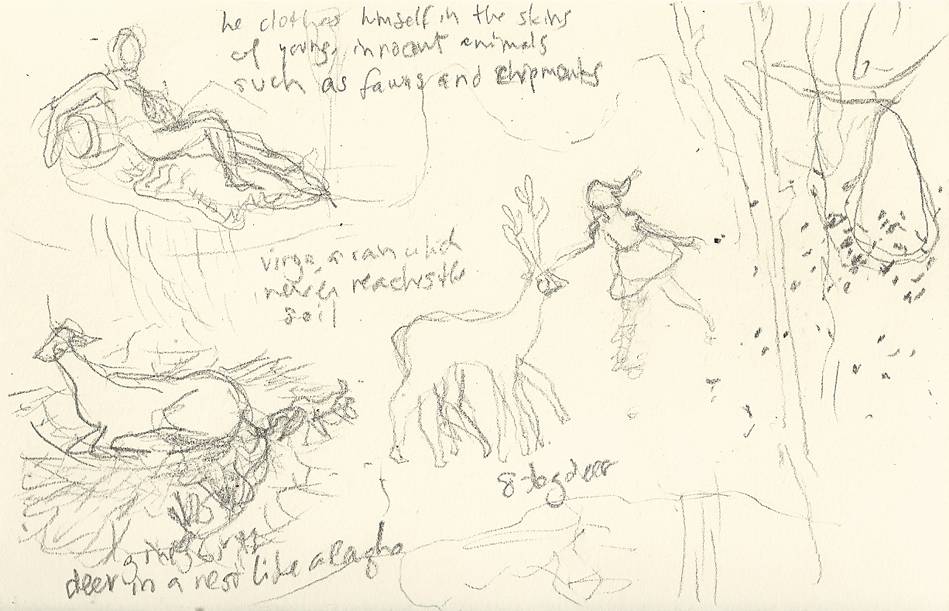 he clothes himself in the skins
of young, innocent animals
such as fawns and chipmunks
virga a rain which
never reaches the
soil
8-leg deer
deer in a nest like a